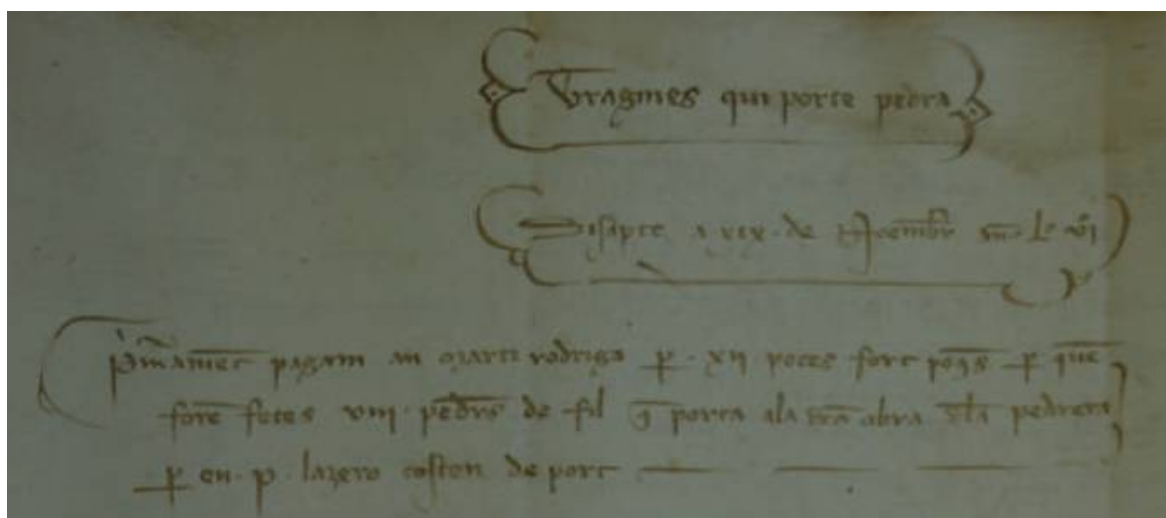 Bragines qui porte pedra
Disapte xxix de Noembr
Pmament pagam an marti rodrigo p xii peces fort p que
foren fetes viii pedrs de fil q porta ala obra dla pedrera
p en p lazero costen de port